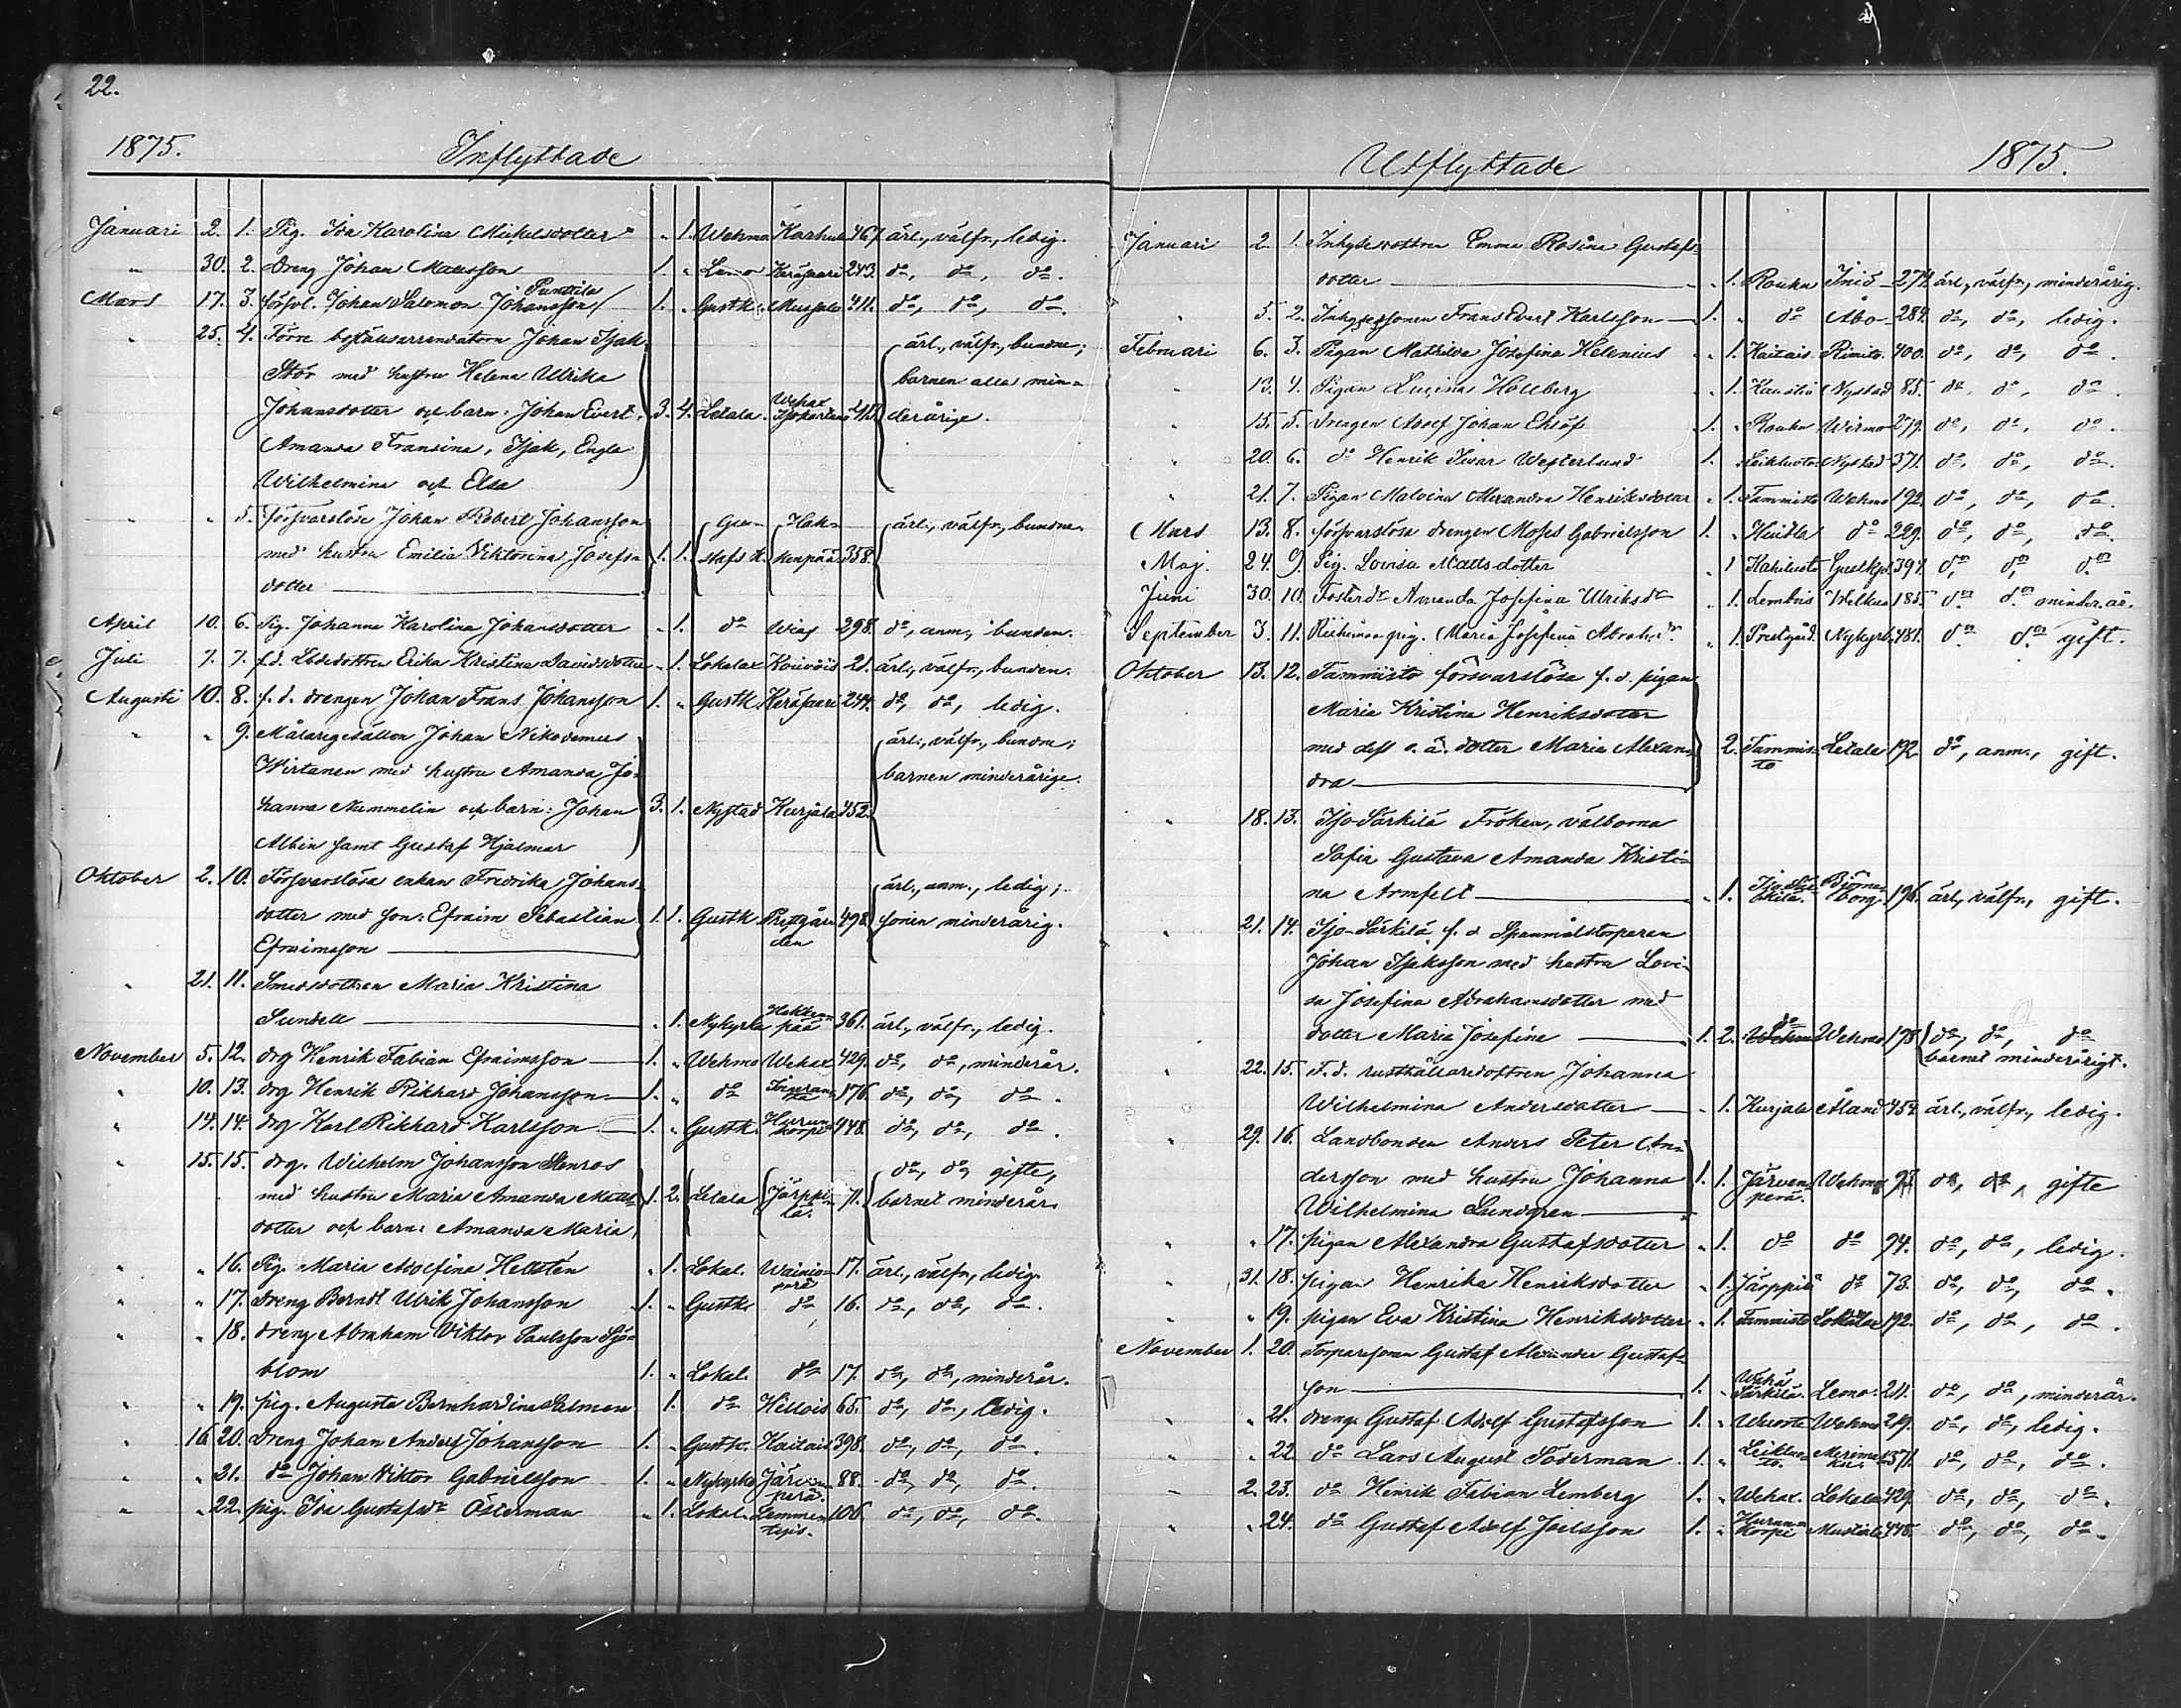 22.
1875. Inflyttade
Januari 2. 1. Pig. Ida Karolina Mickelsdotter " 1. Wehmo Karhula 467. ärl., välfr., ledig.
" 30. 2. Dreng Johan Mattsson 1. " Lemo Keräsaari 243. do, do, do.
Puntila
Mars 17. 3. försvl. Johan Salomon Johansson 1. " Gustk. Musjala 411. do, do, do.
" 25. 4. Förre boställsarrendatorn Johan Isak ärl., välfr., bundne;
Stör med hustru Helena Ulrika barnen alla min-
Johansdotter och barn: Johan Evert, 3. 4. Letala. Wehax 413. derårige.
Amanda Fransina, Isak, Engla
Wilhelmina och Elsa
" " 5. Försvarslöse Johan Robert Johansson Gu- Hak- ärl., välfr., bundne.
med hustru Emilia Viktorina Josefs- 1. 1. stafs k. kenpää 358.
dotter
April 10. 6. Pig. Johanna Karolina Johansdotter " 1. do Wias 298. do, anm., bunden.
Juli 7. 7. f.d. Lbdedottren Erika Kristina Davidsdotter " 1. Lokalax Koivois 21. ärl., välfr., bunden.
Augusti 10. 8. f.d. drengen Johan Frans Johansson 1. " Gustk. Keräsaari 244. do, do, ledig.
" " 9. Målaregesällen Johan Nikodemus ärl., välfr., bundne;
Wirtanen med hustru Amanda Jo- barnen minderårige.
hanna Nummelin och barn: Johan 3. 1. Nystad Kurjala 452.
Albin samt Gustaf Hjalmar
Oktober 2. 10. Försvarslösa enkan Fredrika Johans- ärl., anm., ledig;
dotter med son: Efraim Sebastian 1. 1. Gustk Prestgår- 498. sonen minderårig.
Efraimsson den
" 21. 11. Smedsdottren Maria Kristina
Sundell " 1. Nykyrka Hakken- pää 361. ärl., välfr., ledig.
November 5. 12. drg Henrik Fabian Efraimsson 1. " Wehmo Wehax 429. do, do, minderår.
" 10. 13. drg Henrik Rikhard Johansson 1. " do 176. do, do, do.
" 14. 14. drg Karl Rikhard Karlsson 1. " Gustk. Hurun- korpi 448. do, do, do.
" 15. 15. drg. Wilhelm Johansson Stenros do, do, gifte,
med hustru Maria Amanda Matts- 1. 2. Letala Järppi- 71. barnet minderår.
dotter och barn: Amanda Maria lä.
" " 16. Pig. Maria Adolfina Hellstén " 1. Lokal. Wainio- 17. ärl., välfr., ledig.
perä
" " 17. Dreng Berndt Ulrik Johansson 1. " Gustk. do 16. do, do, do.
" " 18. dreng Abraham Viktor Paulsson Sjö-
blom 1. " Lokal. do 17. do, do, minderår.
" " 19. pig. Augusta Bernhardina Salmen 1. do Hillois 65. do, do, ledig.
" 16 20. Dreng Johan Anders Johansson 1. " Gustk. Haitais 398. do, do, do.
" " 21. do Johan Viktor Gabrielsson 1. " Nykyrka Järven- 88. do, do, do.
perä.
" " 22. pig. Ida Gustafsdr Österman " 1. Lokal. Lemmen- 106. do, do, do.
tejis.
Utflyttade 1875.
Januari 2. 1. Inhysesdottren Emma Rosina Gustafs-
dotter " 1. Rauhu Iniö 274. ärl., välfr., minderårig.
" 5. 2. Inhysessonen Frans Evert Karlsson 1. " do Åbo 284. do, do, ledig.
Februari 6. 3. Pigan Mathilda Josefina Helenius " 1. Haitais Rimito. 400. do, do, do.
" 13. 4. Pigan Lucina Hollberg " 1. Nystad 85. do, do, do.
" 15. 5. Drengen Adolf Johan Eklöf 1. " Rauhu Wirmo 279. do, do, do.
" 20. 6. do Henrik Iivar Westerlund 1. " Leikluoto Nystad 371. do, do, do.
" 21. 7. Pigan Malvina Alexandra Henriksdotter " 1. Tammisto Wehmo 192. do, do, do.
Mars 13. 8. försvarslöse drengen Moses Gabrielsson 1. " do 229. do, do, do.
Maj. 24. 9. Pig. Lovisa Mattsdotter " 1 Kahiluoto Gustkyr. 397. do, do, do.
Juni 30. 10. Fosterdr Amanda Josefina Ulriksdr " 1. Lembois 185. do do minder.år.
September 3. 11. Riihimaa pig. Maria Josefina Abrahdr. " 1. Prestgård. Nykyrk. 481. do do gift.
Oktober 13. 12. Tammisto försvarslösa f.d. pigan
Maria Kristina Henriksdotter
med dess o.ä. dotter Maria Alexan- 2. Tammis- Letala 192. do, anm., gift.
dra to
" 18. 13. Iso-Särkilä Fröken, välborna
Sofia Gustava Amanda Kristi-
na Armfelt " 1. Iso-Sär- kilä. Björne- borg 196. ärl., välfr., gift.
" 21. 14. Iso-Särkilä f.d. Spanmålstorparen
Johan Isaksson med hustru Lovi-
sa Josefina Abrahamsdotter med
dotter Maria Josefina 1. 2. do Wehmo 198 do, do, do
barnet minderårigt.
" 22. 15. F.d. rusthållaredottren Johanna
Wilhelmina Andersdotter " 1. Kurjala Åland 454 ärl., välfr., ledig.
" 29. 16. Landbonden Anders Peter An-
dersson med hustru Johanna 1. 1. Järven- Wehmo 93. do, do, gifte
Wilhelmina Lundgren perä.
" " 17. pigan Alexandra Gustafsdotter " 1. do do 94. do, do, ledig.
" 31. 18. pigan Henrika Henriksdotter " 1. Järppilä do 73. do, do, do.
" " 19. pigan Eva Kristina Henriksdotter " 1. Tammisto Lokalax 192. do, do, do.
November 1. 20. Torparesonen Gustaf Alexander Gustafs-
son 1. " Wähä Särkilä. Lemo. 211. do, do, minderår.
" " 21. dreng. Gustaf Adolf Gustafsson 1. " Wehmo 219. do, do, ledig.
" " 22. do Lars August Söderman 1. " Leikluo- to. Merimas- ku. 371. do, do, do.
" 2. 23. do Henrik Fabian Lemberg 1. " Wehax. Lokala 429. do, do, do.
" " 24. do Gustaf Adolf Joelsson 1. " Hurun- korpi 448. do, do, do.